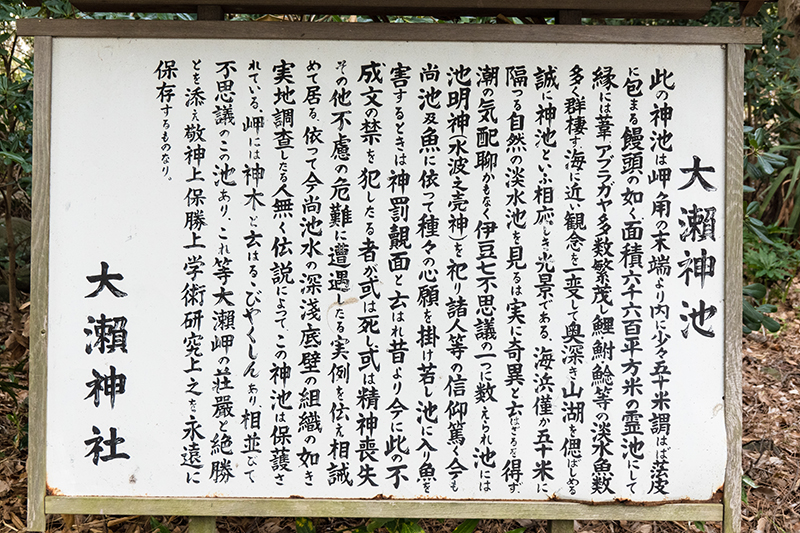 大瀬神池
此の神池は岬角の末端より内に少々五十米謂はば落虔
に包まる饅頭の如く面積六千六百平方米の霊池にして
縁には葦アブラガヤ多数繁茂し鯉鮒鯰等の淡水魚数
多く群棲す海に近い観念を一変して奥深き山湖を偲ばしめる
誠に神池といふ相応しき光景である、海浜僅か五十米に
隔つる自然の淡水池を見るは実に奇異と云はざるを得ず、
潮の気配聊かもなく伊豆七不思議の一つに数えられ池には
池明神(水波之売神)を祀り諸人等の信仰篤く今も
尚池及魚に依って種々の心願を掛け若し池に入り魚を
害するときは神罰覿面と云はれ昔より今に此の不
成文の禁を犯したる者が或は死し或は精神喪失
その他不慮の危難に遭遇したる実例を伝え相誡
めて居る、依って今尚池水の深浅底壁の組織の如き
実地調査したる人無く伝説によって、この神池は保護さ
れている、岬には神木と云はるゝびやくしんあり相並びて
不思議のこの池あり、これ等大瀬岬の荘厳と絶勝
とを添え敬神上保勝上学術研究上之を永遠に
保存するものなり。
大瀬神社